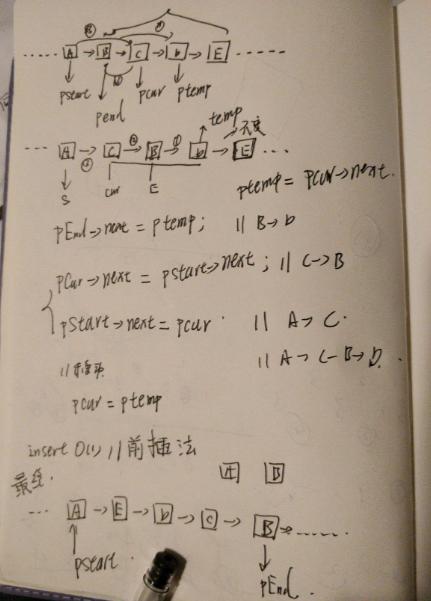 ③ ①
..... A → B → C → b → E ......
②
pstart pcur ptemp
pEnd
temp
③ ② ① 不变
... A → C → B → b → E ...
S cur E
ptemp = pcur→next.
pEnd→next = ptemp; // B→D
pcur→next = pstart→next; // C→B
pstart→next = pcur. // A→C.
// A→C→B→D.
//
pcur = ptemp
insert O(1) // 前插法
A B
最终.
... A → E → b → C → B → ......
pstart.
pEnd.